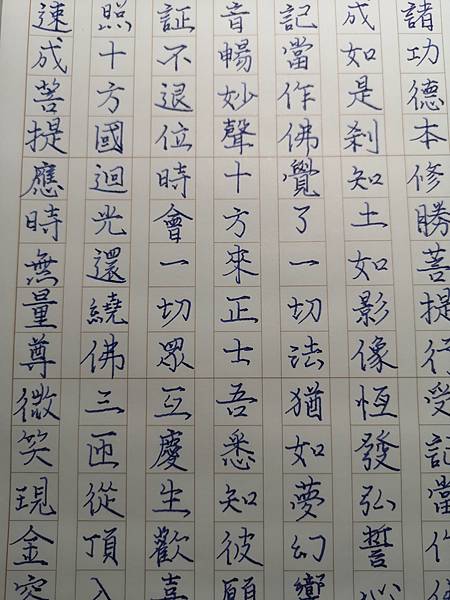 諸功德本修勝菩提行受記當作
成如是剎知土如影像恆發弘誓心
記當作佛覺了一切法猶如夢幻響
音暢妙聲十方來正士吾悉知彼願
証不退位時會一切眾互慶生歡喜
照十方國迴光還繞佛三匝從頂入
速成菩提應時無量尊微笑現金容